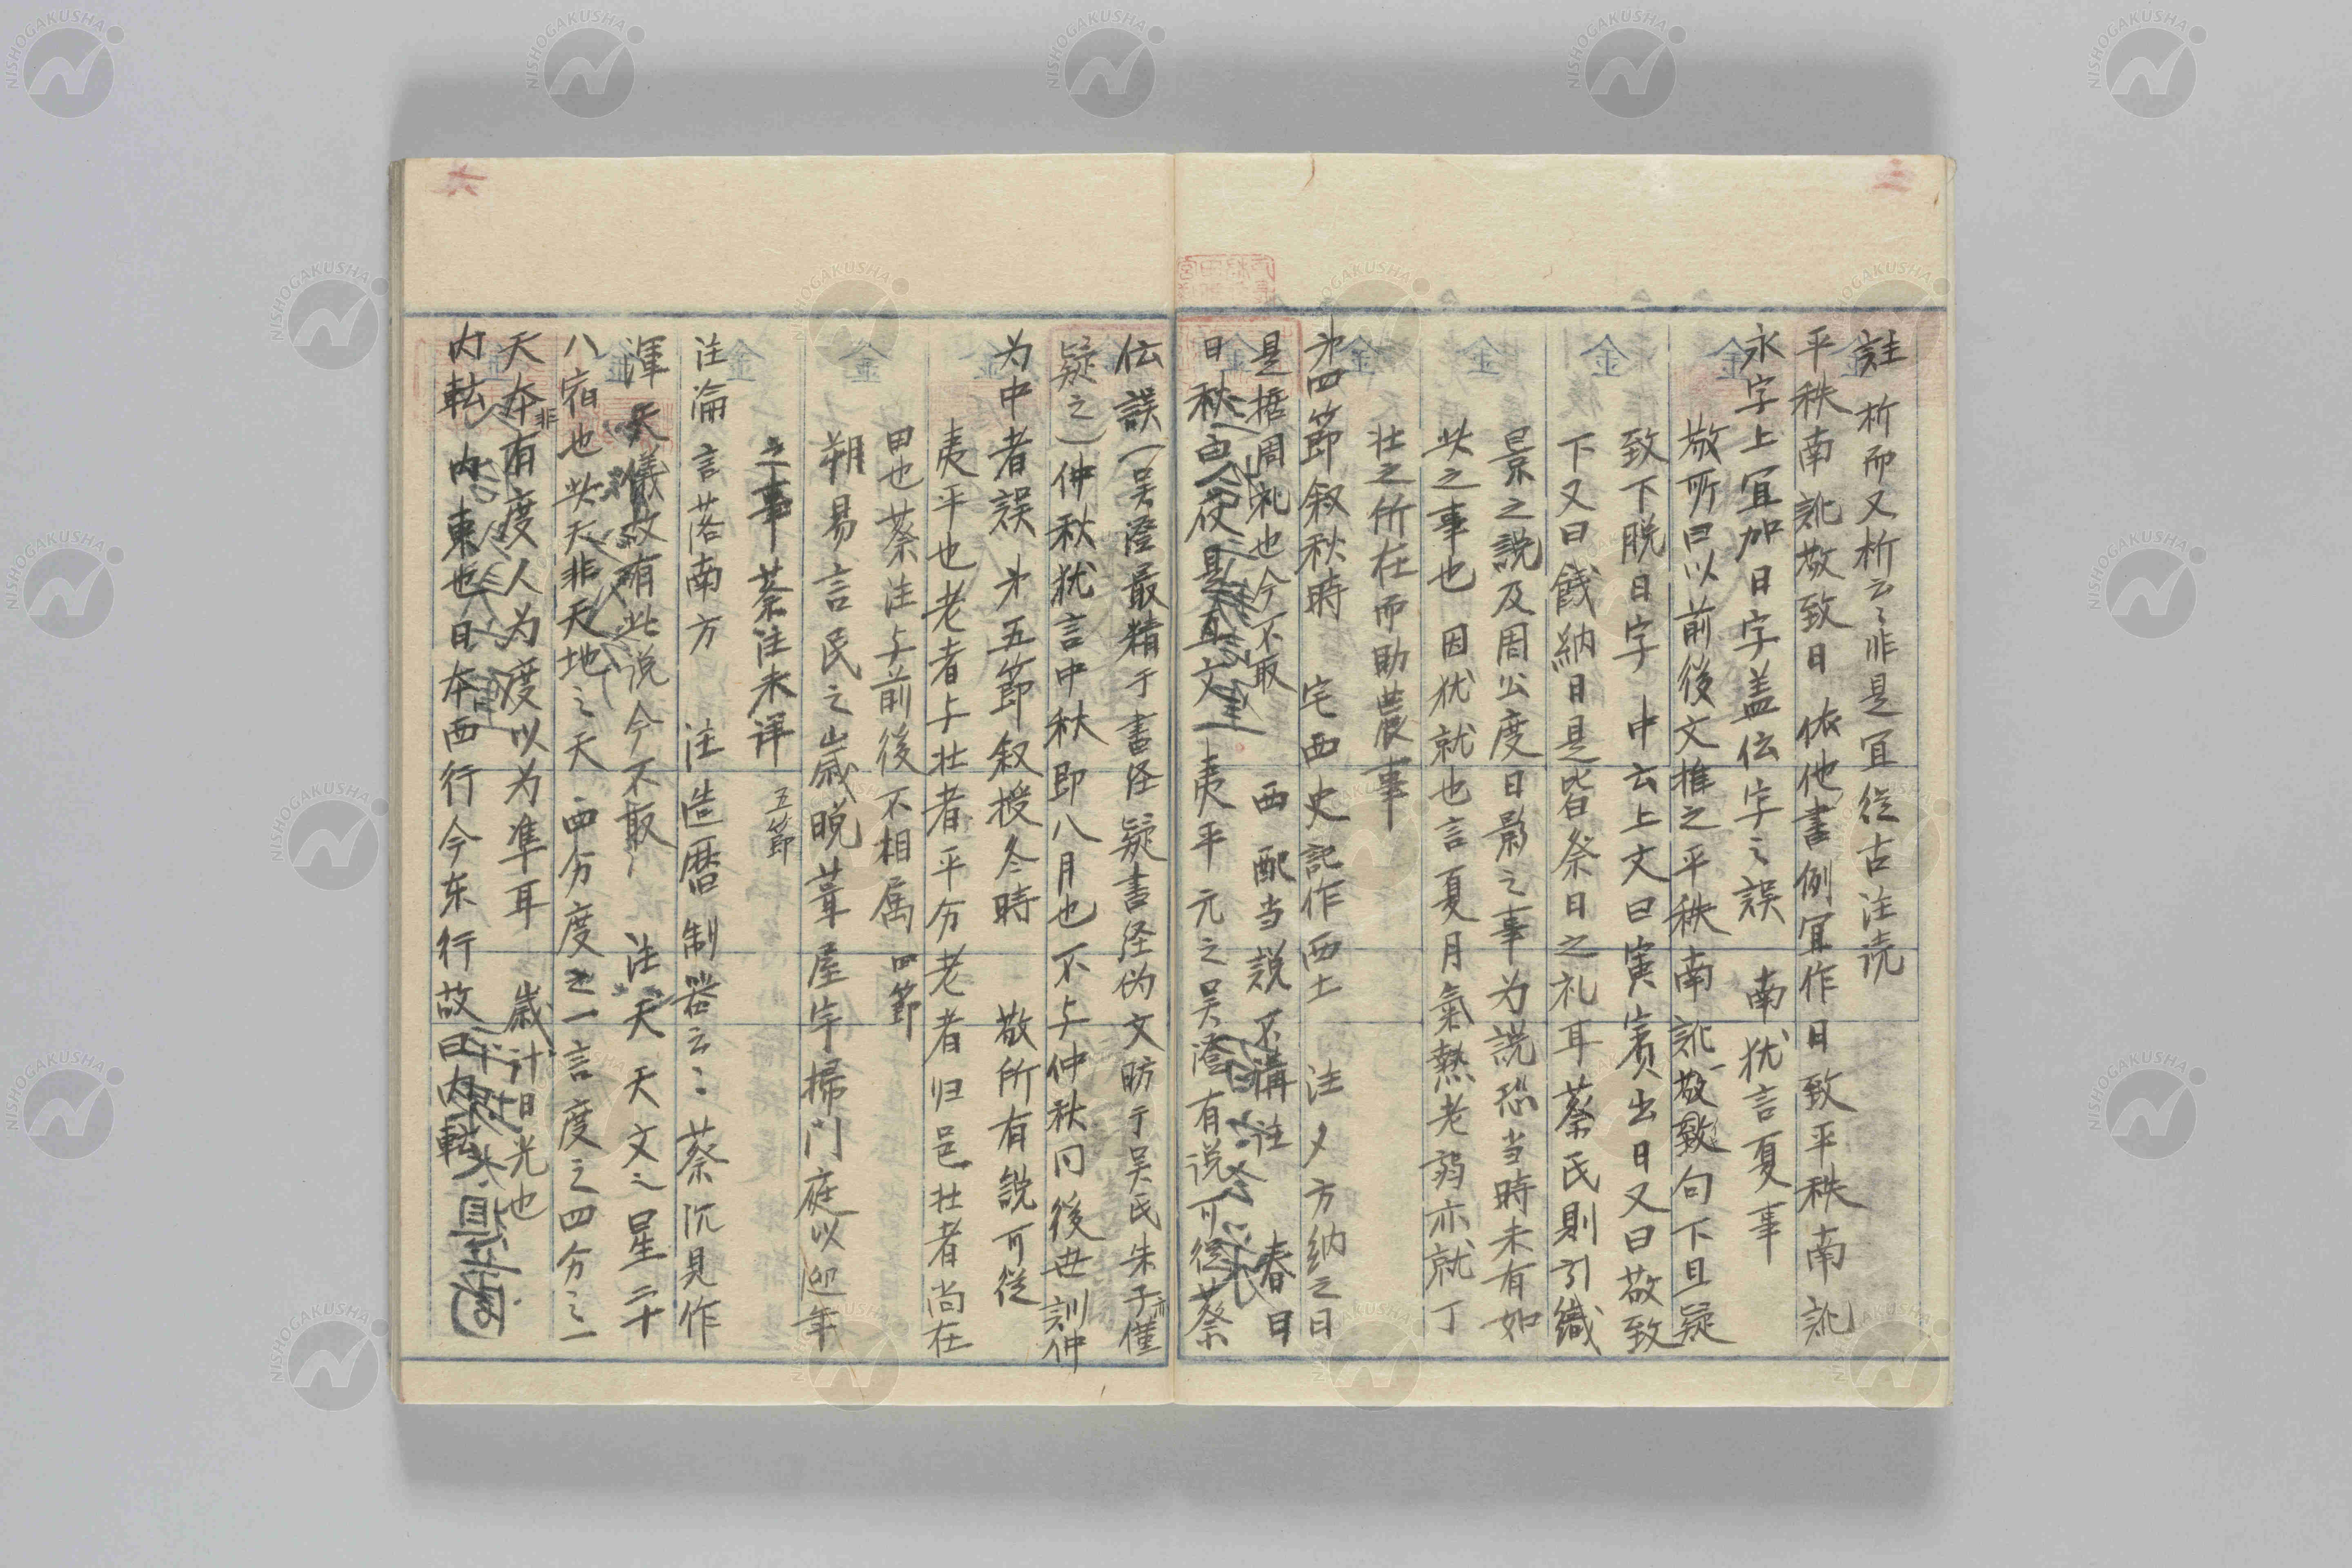 註 析而又析云〻非是宜從古注読
平秩南訛敬致日 依他書例宜作日致平秩南訛
永字上宜加日字盖伝字之誤 南犹言夏事
敬所曰以前後文推之平秩南訛敬致句下且疑
致下脱日字 中云上文曰寅賓出日又曰敬致
下又曰餞納日是皆祭日之礼耳蔡氏則引織
景之説及周公度日影之事为説恐当時未有如
此之事也 因犹就也言夏月氣熱老弱亦就丁
壮之所在而助農事
㐧四節叙秋時 宅西史記作西土 注夕方納之日
是拠周礼也今不取 西配当説不講注 春日
日秋 夷平 元之吴澄有说可從蔡
伝誤(吴澄最精于書经疑書径伪文昉于吴氏朱子僅
疑之)仲秋犹言中秋即八月也不与仲秋同後世訓仲
为中者誤 㐧五節叙授冬時 敬所有説可從
夷平也老者与壮者平分老者归邑壮者尚在
田也蔡注与前後不相属 四節
朔易言民之歳晩葺屋宇掃門庭以迎年
之事蔡注未详 五節
注淪言落南方 注造暦制器云〻蔡沉見作
渾天儀故有此说今不取 注天天文之星二十
八宿也此天非天地之天 四分度之一言度之四分之一
天本非有度人为度以为準耳 歳計日光也
内転 内東也日本西行今东行故曰内転
三
六
NISHOGAKUSHA